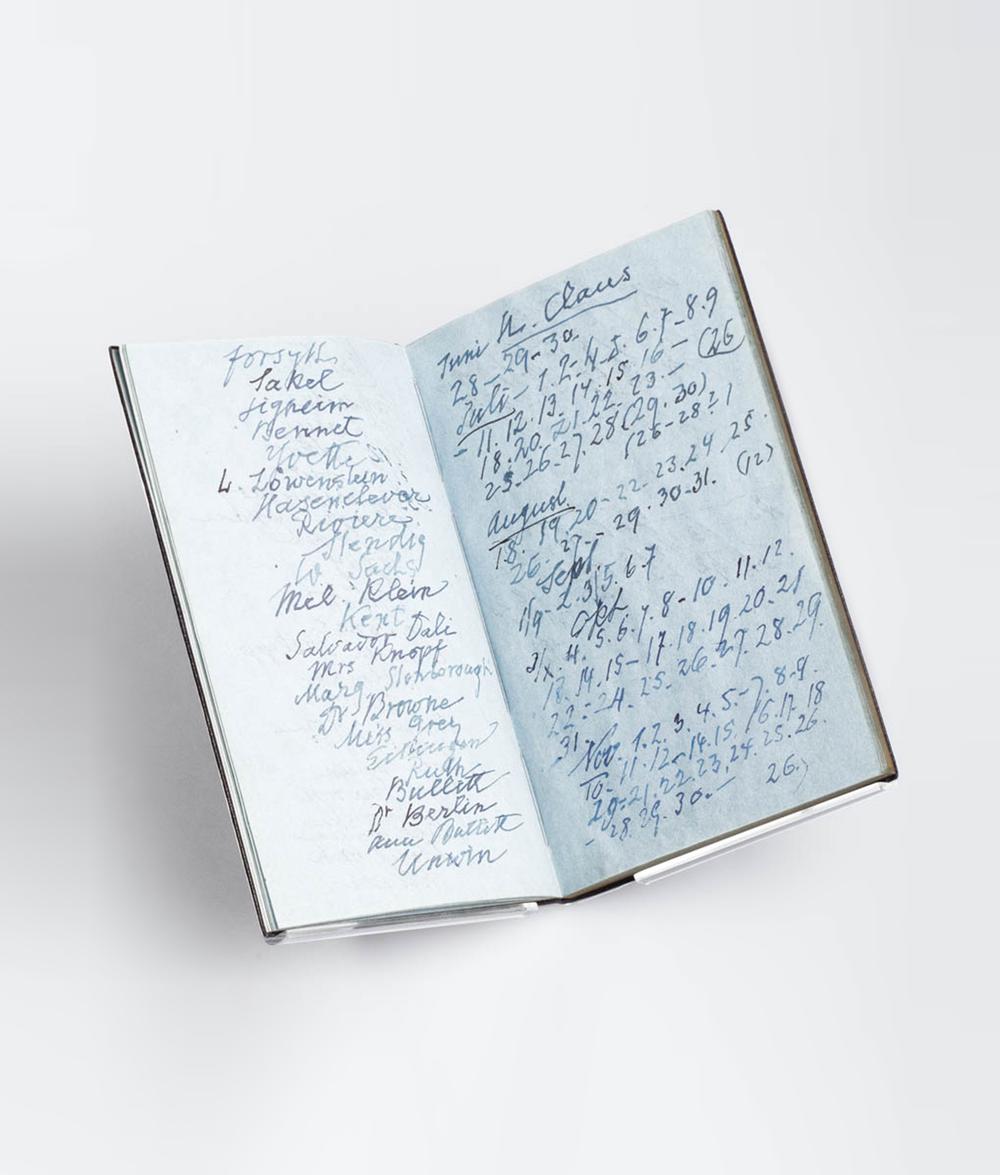 Forsyth
Sakel
Bennet
Yvette
L. Löwenstein
Hasenclever
Riviere
Dr. Sachs
Mel. Klein
Kent
Salvador Dali
Mrs Knopf
Marg
Dr Browne
Miss Grey
Ruth
Bullitt
Dr Berlin
Unwin
Claus
Juni
28 - 29 - 30.
Juli - 1. 2 - 4. 5. 6. 7 - 8. 9
- 11. 12. 13. 14. 15 16 - (26
18. 20. 21. 22. 23. -
25. 26. 27. 28 (29. 30)
(26 - 28?)
August
18. 19. 20 - 22 - 23. 24. 25.
26. 27 - 29. 30 - 31. (12)
Sept
1/9 - 2. 3. 5. 6. 7
Okt
3/X 4. 5. 6. 7. 8 - 10. 11. 12.
13. 14. 15 - 17. 18. 19. 20. 21
22 - 24. 25. 26. 27. 28. 29.
31.
Nov. 1. 2. 3. 4. 5. - 7. 8. 9.
10. 11. 12 - 14. 15. 16. 17. 18
21. 22. 23. 24. 25. 26.
- 28. 29. 30. - 26.)